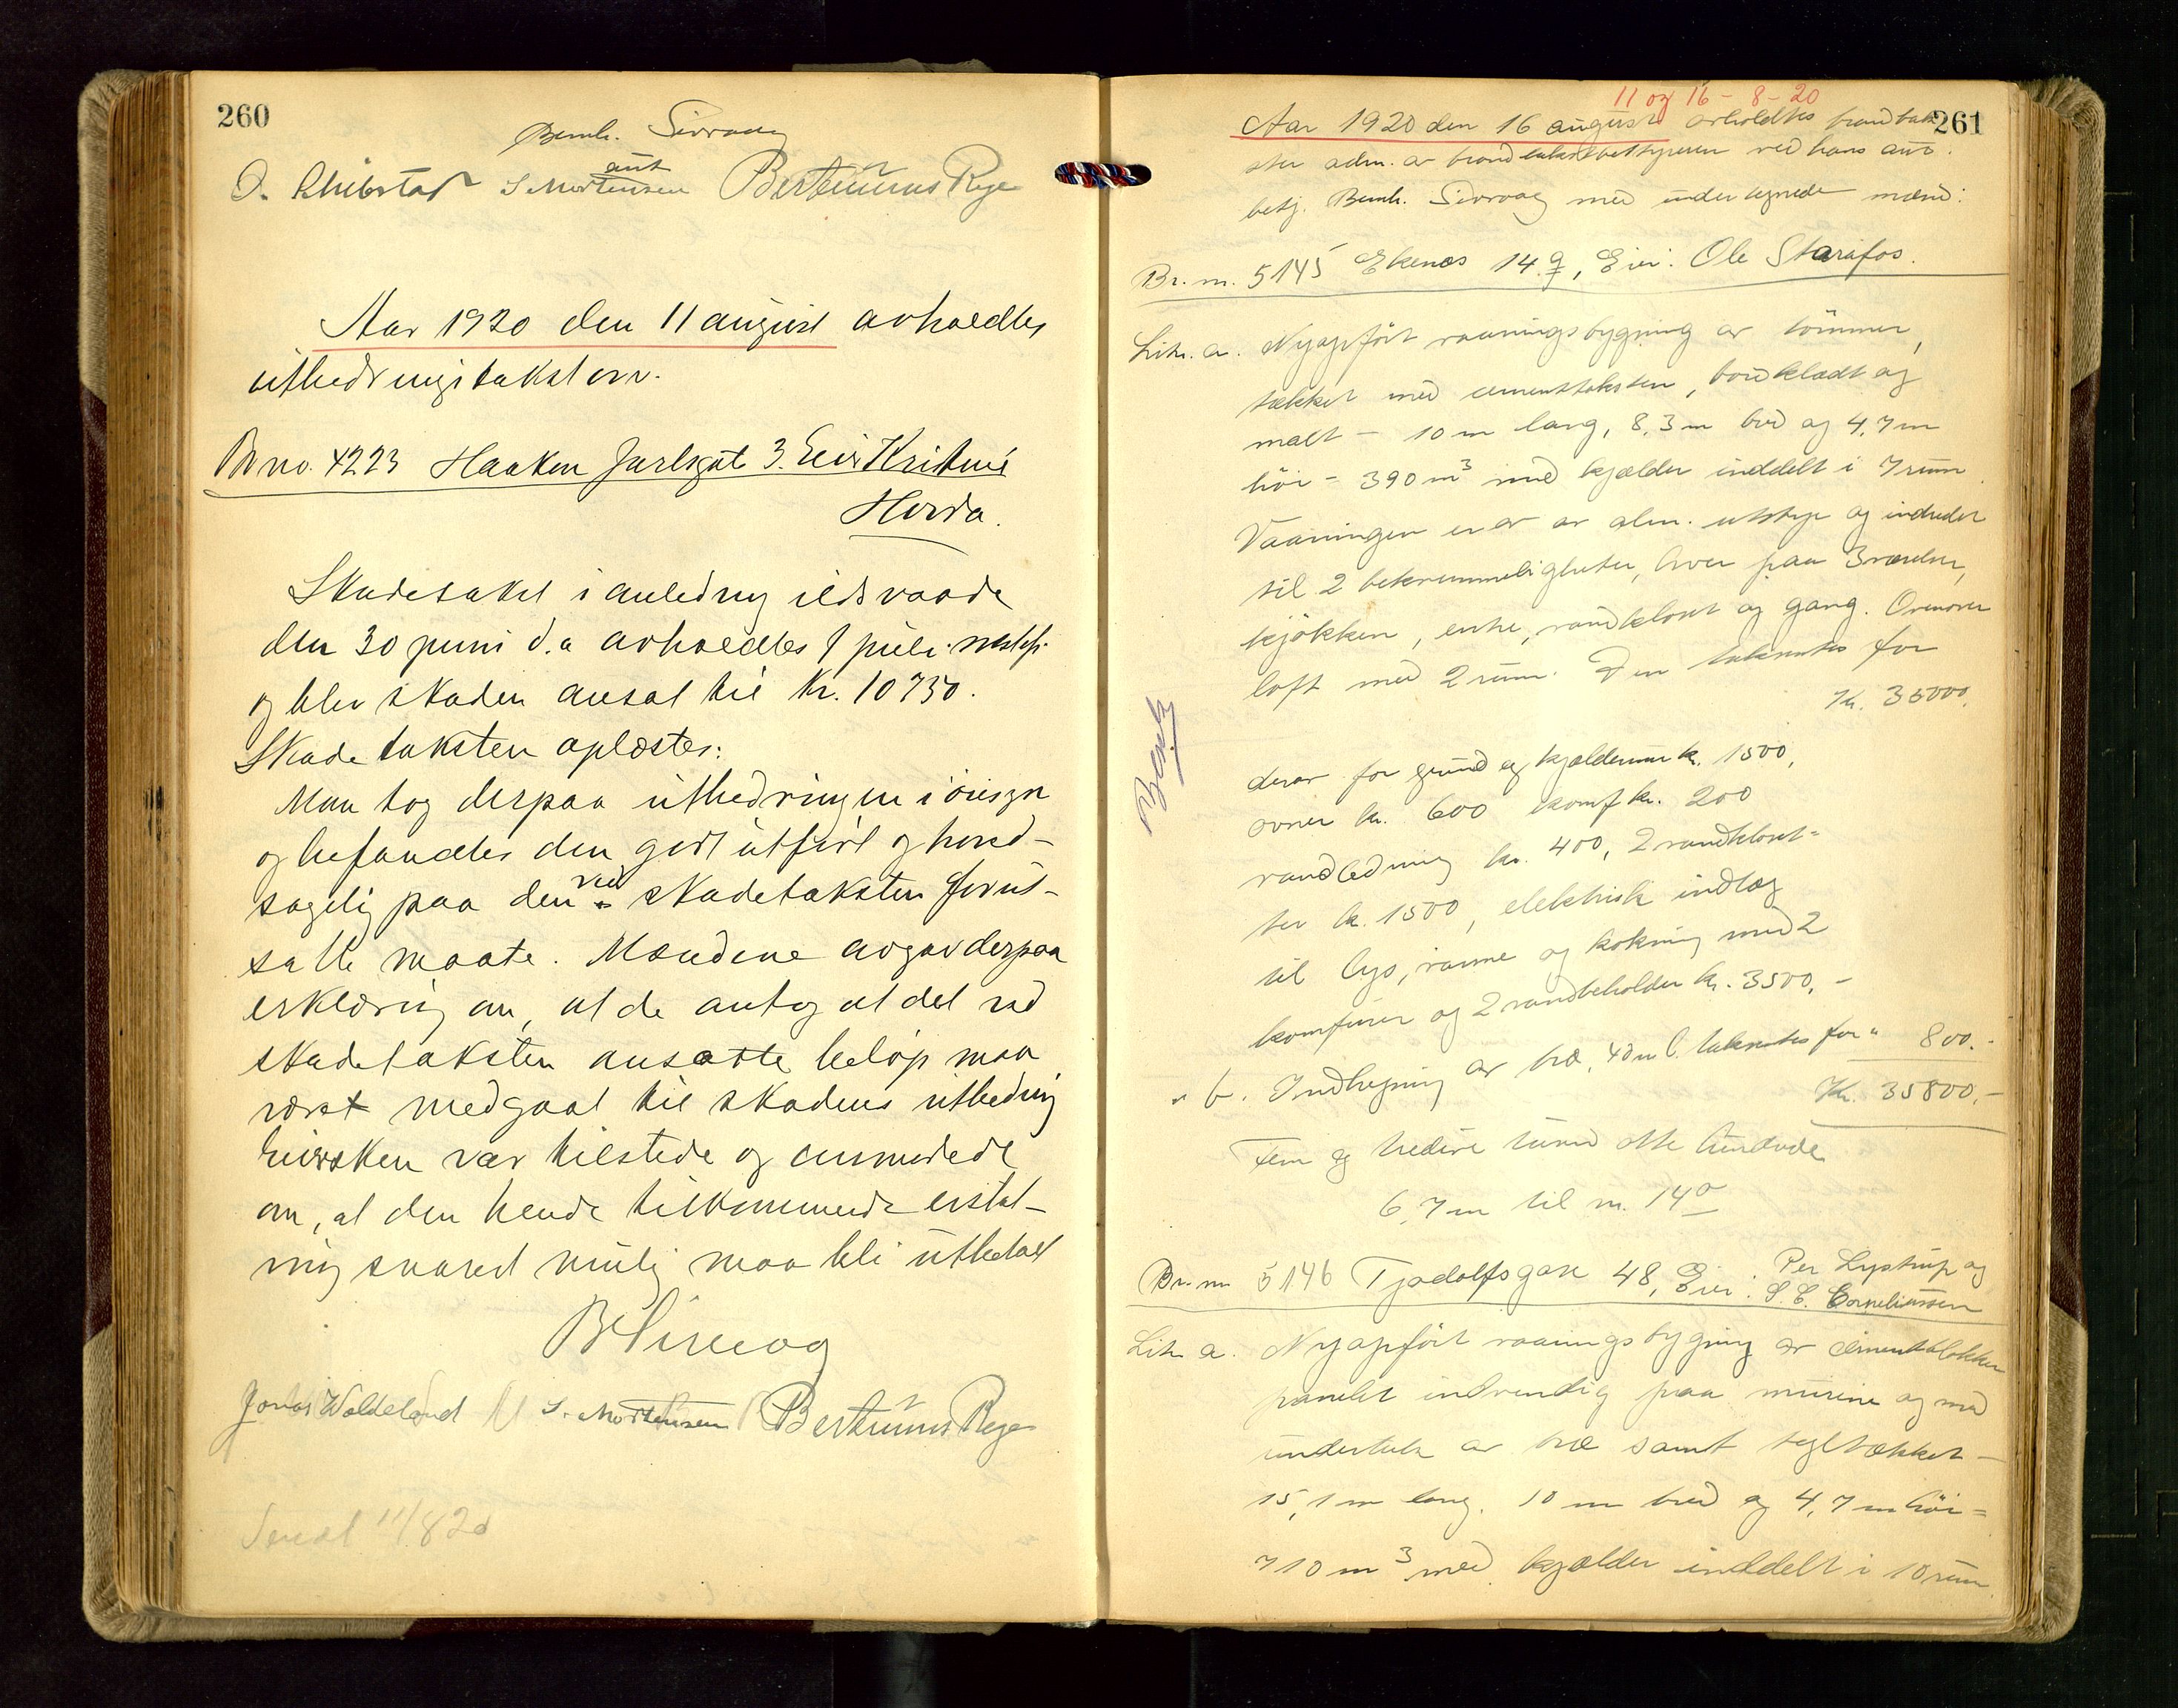 260
Bernh. Sivvaag
aut
O. S. Mortensen Bertinius Rege
Aar 1920 den 11 august avholdtes
utbedringstakst over.
Br no. 4223 Haakon Jarlsgt 3. Eier Kristine
Horda.
Skadetakst i anledning ildsvaade
den 30 juni d.a avholdtes 1 juli
og blev skaden ansat til Kr. 10750.
Skadetaksten oplæstes.
Man tog derpaa utbedringen i øiesyn
og befandtes den godt utført og hoved-
sagelig paa den ved skadetaksten forut-
satte maate. Mændene avgav derpaa
erklæring om, at de antog at det ved
skadetaksten ansatte beløp maa
været medgaat til skadens utbedring
Eiersken var tilstede og anmodede
om, at den hende tilkommende erstat-
ning snarest mulig maa bli utbetalt
B Sivvaag
Jonas Woldeland S. Mortensen Bertinius Rege
Sendt 11/8 20
11 og 16 - 8 - 20
261
Aar 1920 den 16 august avholdtes brandtak-
ster adm. av brandtakstbestyreren ved hans aut.
betj. Bernh. Sivvaag med undertegnede mænd:
Br. nr. 5145 Ekenæs 14 g, Eier: Ole Starifos.
Litr. a. Nyopført vaaningsbygning av tømmer,
tækket med cementtaksten, bordklædt og
malt - 10 m lang, 8,3 m bred og 4,7 m
høi = 390 m³ med kjælder inddelt i 7 rum
Vaaningen er av alm. utstyr og indredet
til 2 bekvemmeligheter, hver paa 3 værelser,
kjøkken, entre, vandklosett og gang. Ovenover
loft med 2 rum. Den takseres for
Kr. 35000.
Bank
derav for grund og kjældermur kr. 1500,
ovner kr. 600 komf kr. 200
vandledning kr. 400, 2 vandkloset-
ter kr. 1500, elektrisk indlæg
til lys, varme og kokning med 2
komfurer og 2 vandbeholder kr. 3500.-
" b. Indhegning av træ, 40 m l. takseres for " 800.-
Kr. 35800.-
Fem og tredive tusind otte hundrede
6,7 m til nr. 14 a
Br. nr 5146 Tjodolfsgate 48, Eier: Per Lystrup og
S. C. Corneliussen
Litr a. Nyopført vaaningsbygning av cementblokker
panelet indvendig paa murene og med
undertak av træ samt tegltækket -
15,1 m lang. 10 m bred og 4,7 m høi =
710 m³ med kjælder inddelt i 10 rum